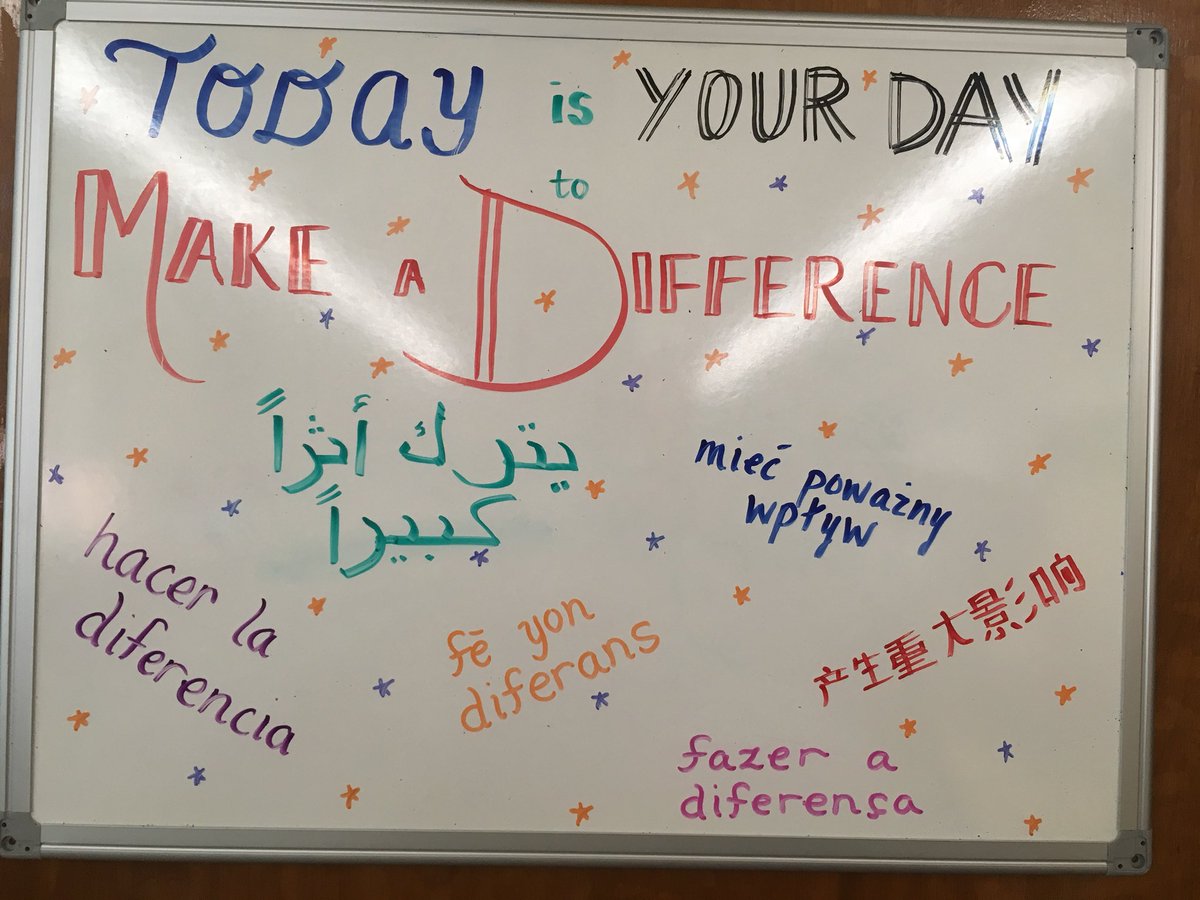 TODAY is YOUR DAY
to
MAKE A DIFFERENCE
يترك أثراً
كبيراً
mieć poważny
wpływ
hacer la
diferencia
fē yon
diferans
产生重大影响
fazer a
diferença